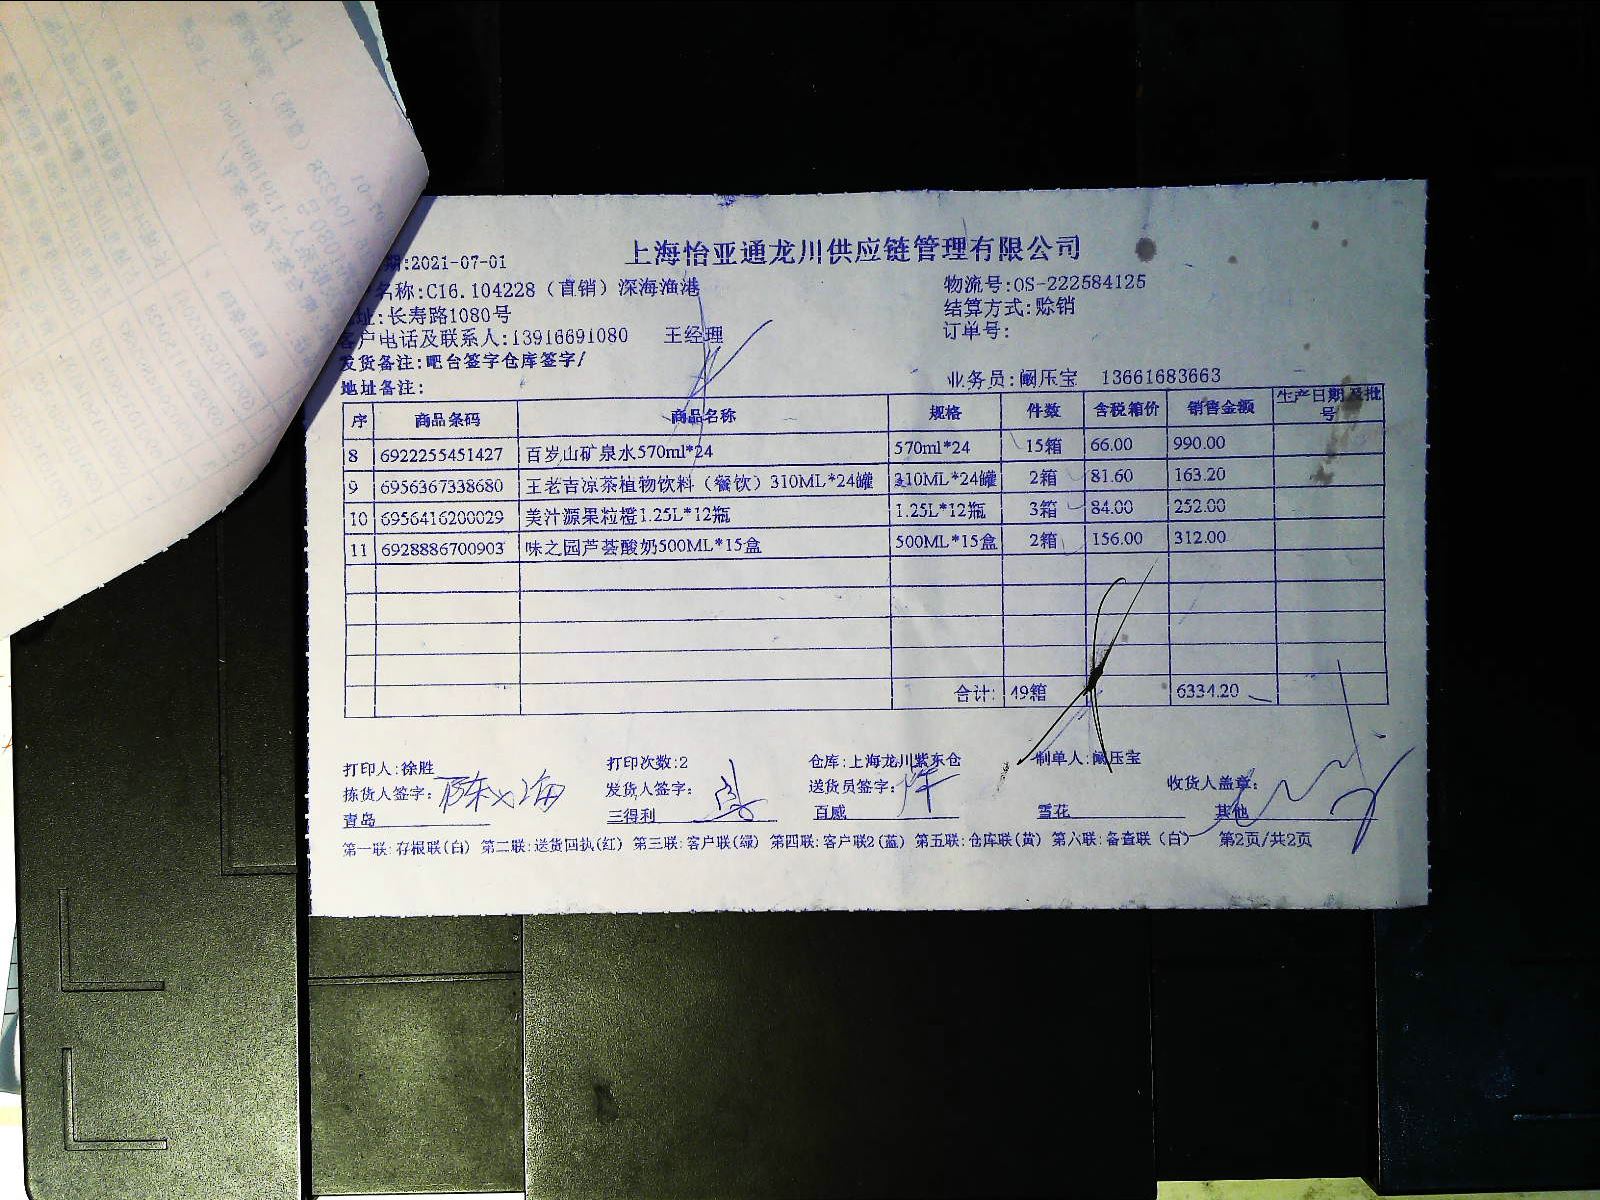 上海怡亚通龙川供应链管理有限公司
期:2021-07-01
名称:C16.104228（直销）深海渔港
物流号:OS-222584125
址:长寿路1080号
结算方式:赊销
客户电话及联系人:13916691080 王经理
订单号:
发货备注:吧台签字仓库签字/
地址备注:
业务员:阚压宝 13661683663
序 商品条码 商品名称 规格 件数 含税箱价 销售金额 生产日期及批号
8 6922255451427 百岁山矿泉水570ml*24 570ml*24 15箱 66.00 990.00
9 6956367338680 王老吉凉茶植物饮料（餐饮）310ML*24罐 310ML*24罐 2箱 81.60 163.20
10 6956416200029 美汁源果粒橙1.25L*12瓶 1.25L*12瓶 3箱 84.00 252.00
11 6928886700903 味之园芦荟酸奶500ML*15盒 500ML*15盒 2箱 156.00 312.00
合计: 49箱 6334.20
打印人:徐胜 打印次数:2 仓库:上海龙川紫东仓 制单人:阚压宝
拣货人签字: 发货人签字: 送货员签字: 收货人盖章:
青岛 三得利 百威 雪花 其他
第一联:存根联(白) 第二联:送货回执(红) 第三联:客户联(绿) 第四联:客户联2(蓝) 第五联:仓库联(黄) 第六联:备查联(白) 第2页/共2页